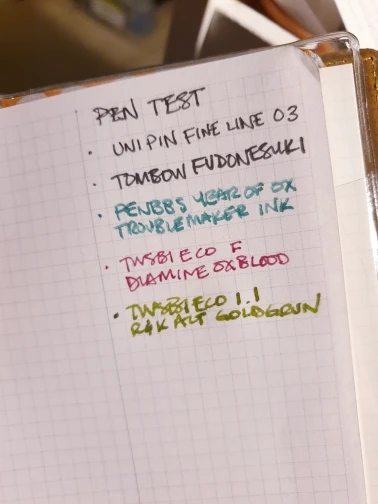 PEN TEST
• UNI PIN FINE LINE 03
• TOMBOW FUDONESUKI
• PENBBS YEAR OF OX
TROUBLEMAKER INK
• TWSBI ECO F
DIAMINE OXBLOOD
• TWSBI ECO 1.1
R&K ALT GOLDGRUN